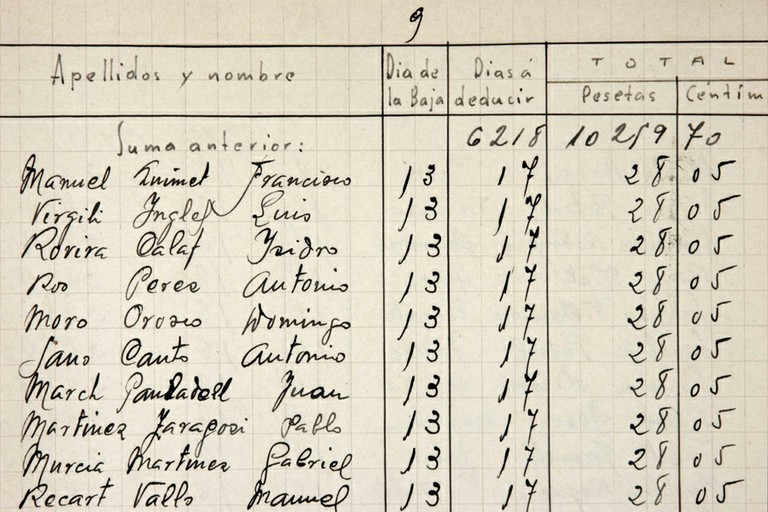 9
Apellidos y nombre Dia de la Baja Dias á deducir TOTAL Pesetas Céntim
Suma anterior: 6218 10259 70
Manuel Guimet Francisco 13 17 28 05
Virgili Ingles Luis 13 17 28 05
Rovira Calaf Isidro 13 17 28 05
Ros Perez Antonio 13 17 28 05
Moro Orosco Domingo 13 17 28 05
Sans Canto Antonio 13 17 28 05
March Juan 13 17 28 05
Martinez Zaragozi Pablo 13 17 28 05
Murcia Martinez Gabriel 13 17 28 05
Recart Valls Manuel 13 17 28 05